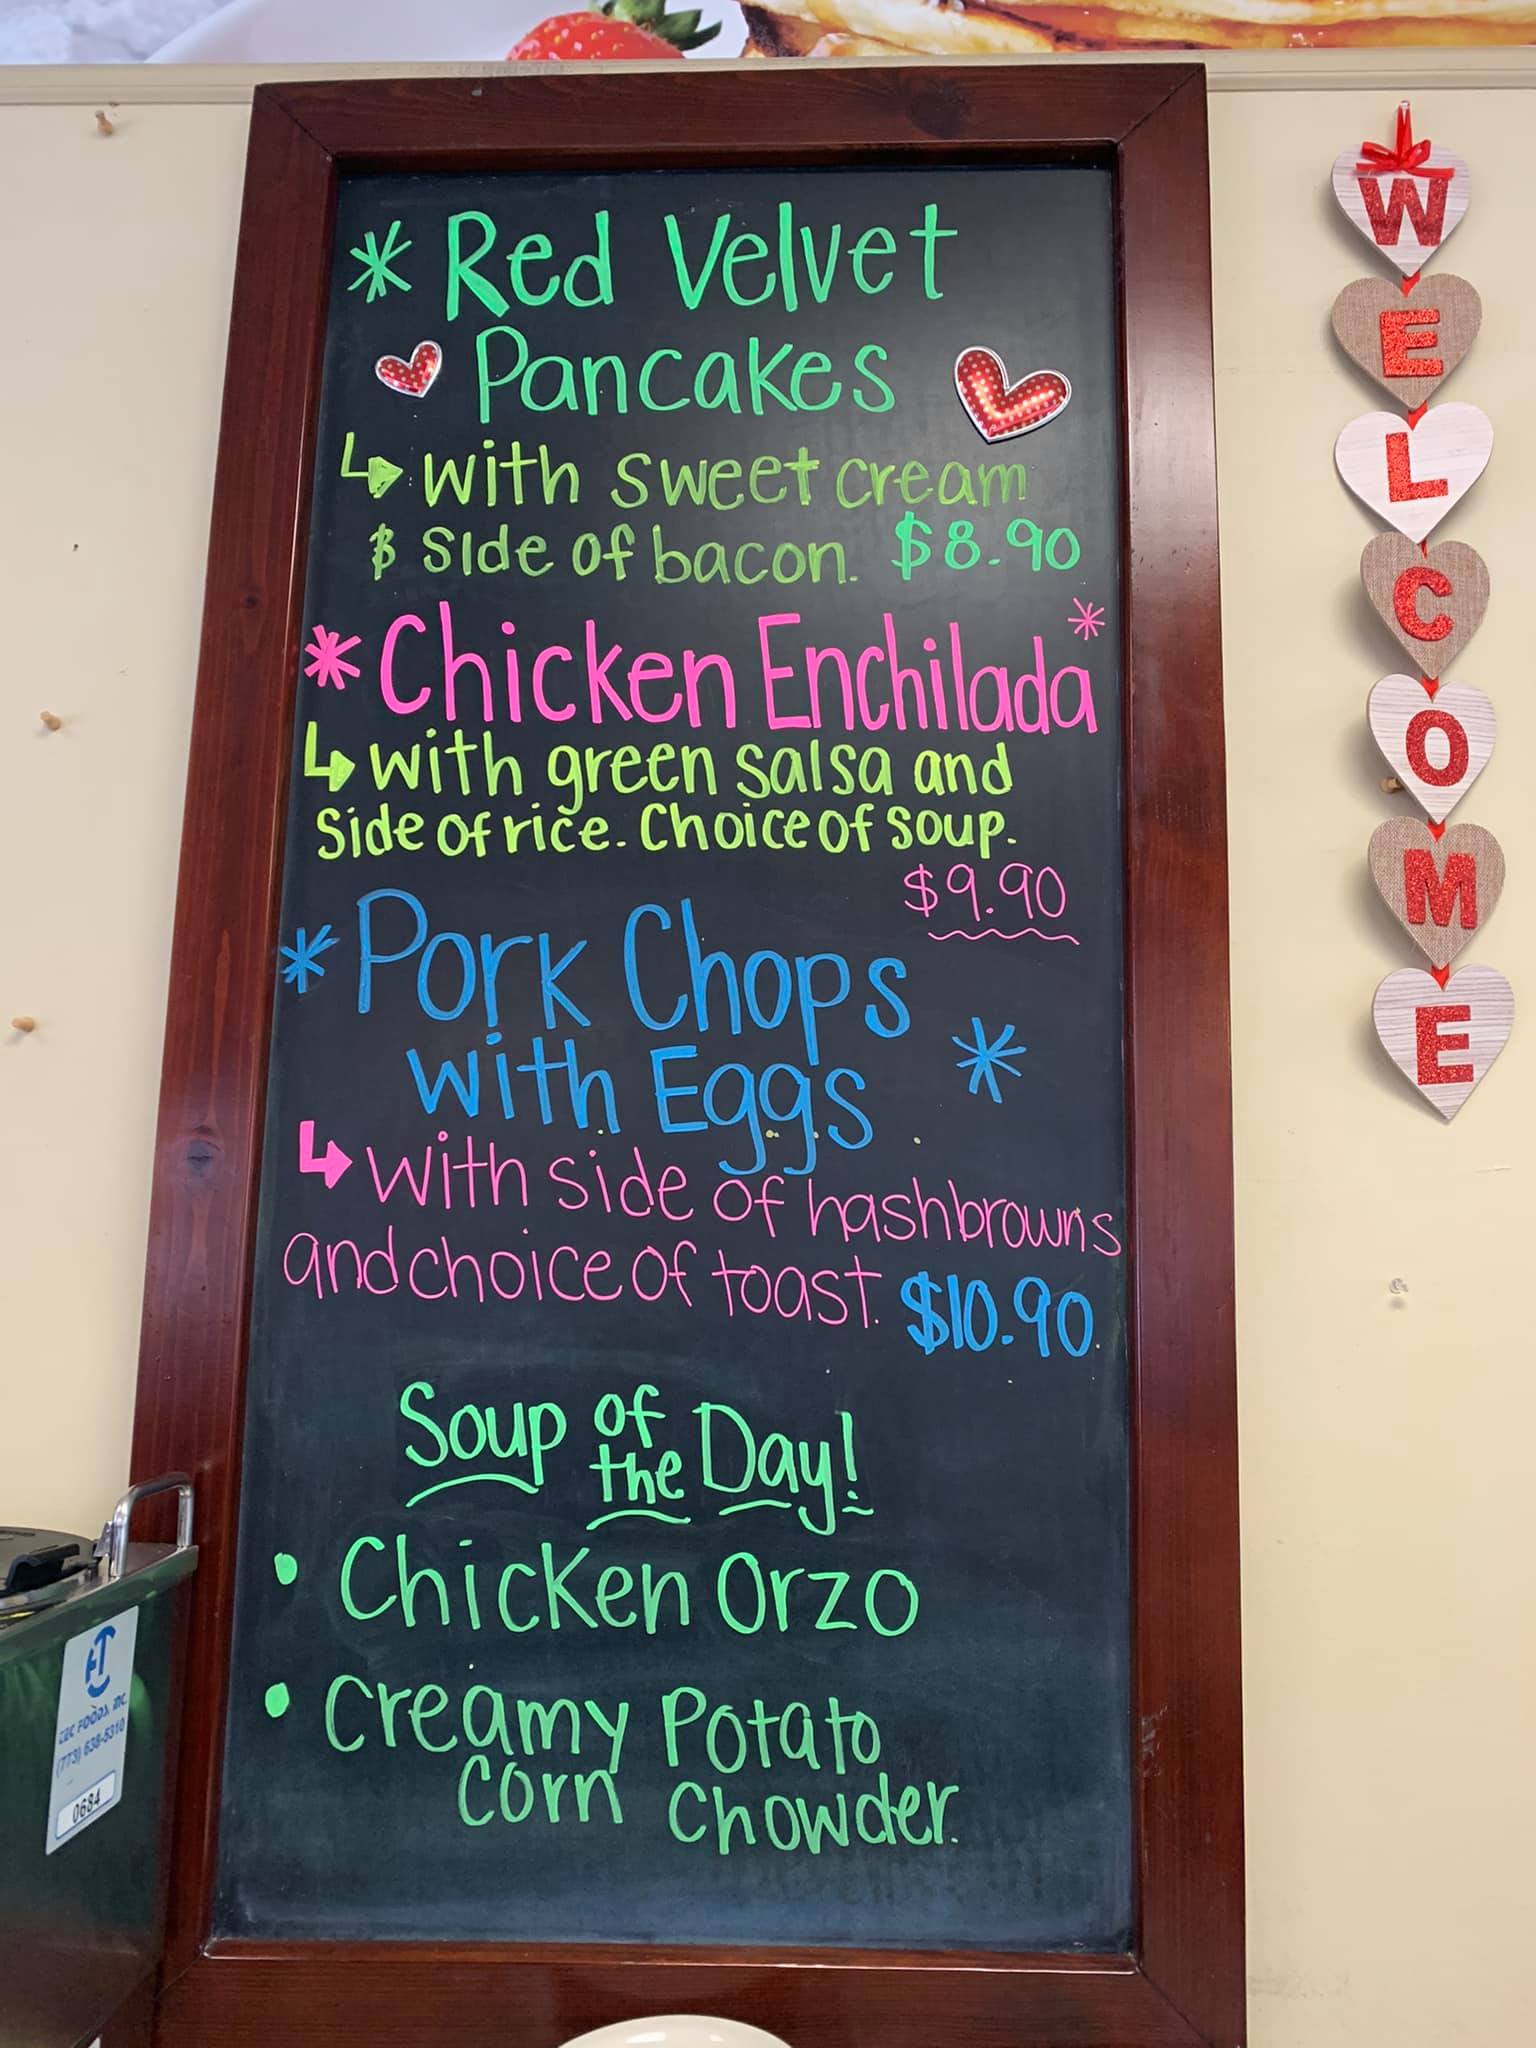 * Red Velvet
Pancakes
↳ with sweet cream
& side of bacon. $8.90
* Chicken Enchilada *
↳ with green salsa and
side of rice. Choice of soup.
$9.90
* Pork Chops
with Eggs *
↳ with side of hashbrowns
and choice of toast. $10.90.
Soup of
the Day!
• Chicken Orzo
• Creamy Potato
Corn Chowder.
W
E
L
C
O
M
E
FOODS, INC.
(773) 638-5310
0684